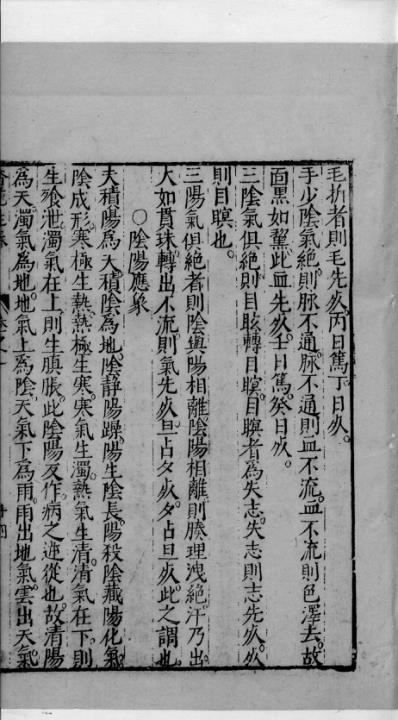 毛折者則毛先死丙日篤丁日死。
手少陰氣絶則脉不通。脉不通則血不流。血不流則色澤去。故
面黒如䵩此血先死。壬日篤。癸日死。
三陰氣俱絶則目眩轉目瞑。目瞑者為失志。失志則志先死。死
則目瞑也。
三陽氣俱絶者則陰與陽相離。陰陽相離則腠理洩絶汗乃出
大如貫珠。轉出不流則氣先死。旦占夕死。夕占旦死。此之謂也。
○陰陽應象
夫積陽為天。積陰為地。陰静陽躁。陽生陰長。陽殺陰藏。陽化氣
陰成形。寒極生熱。熱極生寒。寒氣生濁。熱氣生清。清氣在下。則
生飱泄。濁氣在上。則生䐜脹。此陰陽反作。病之逆從也。故清陽
為天。濁氣為地。地氣上為陰。天氣下為雨。雨出地氣。雲出天氣。
卷之一